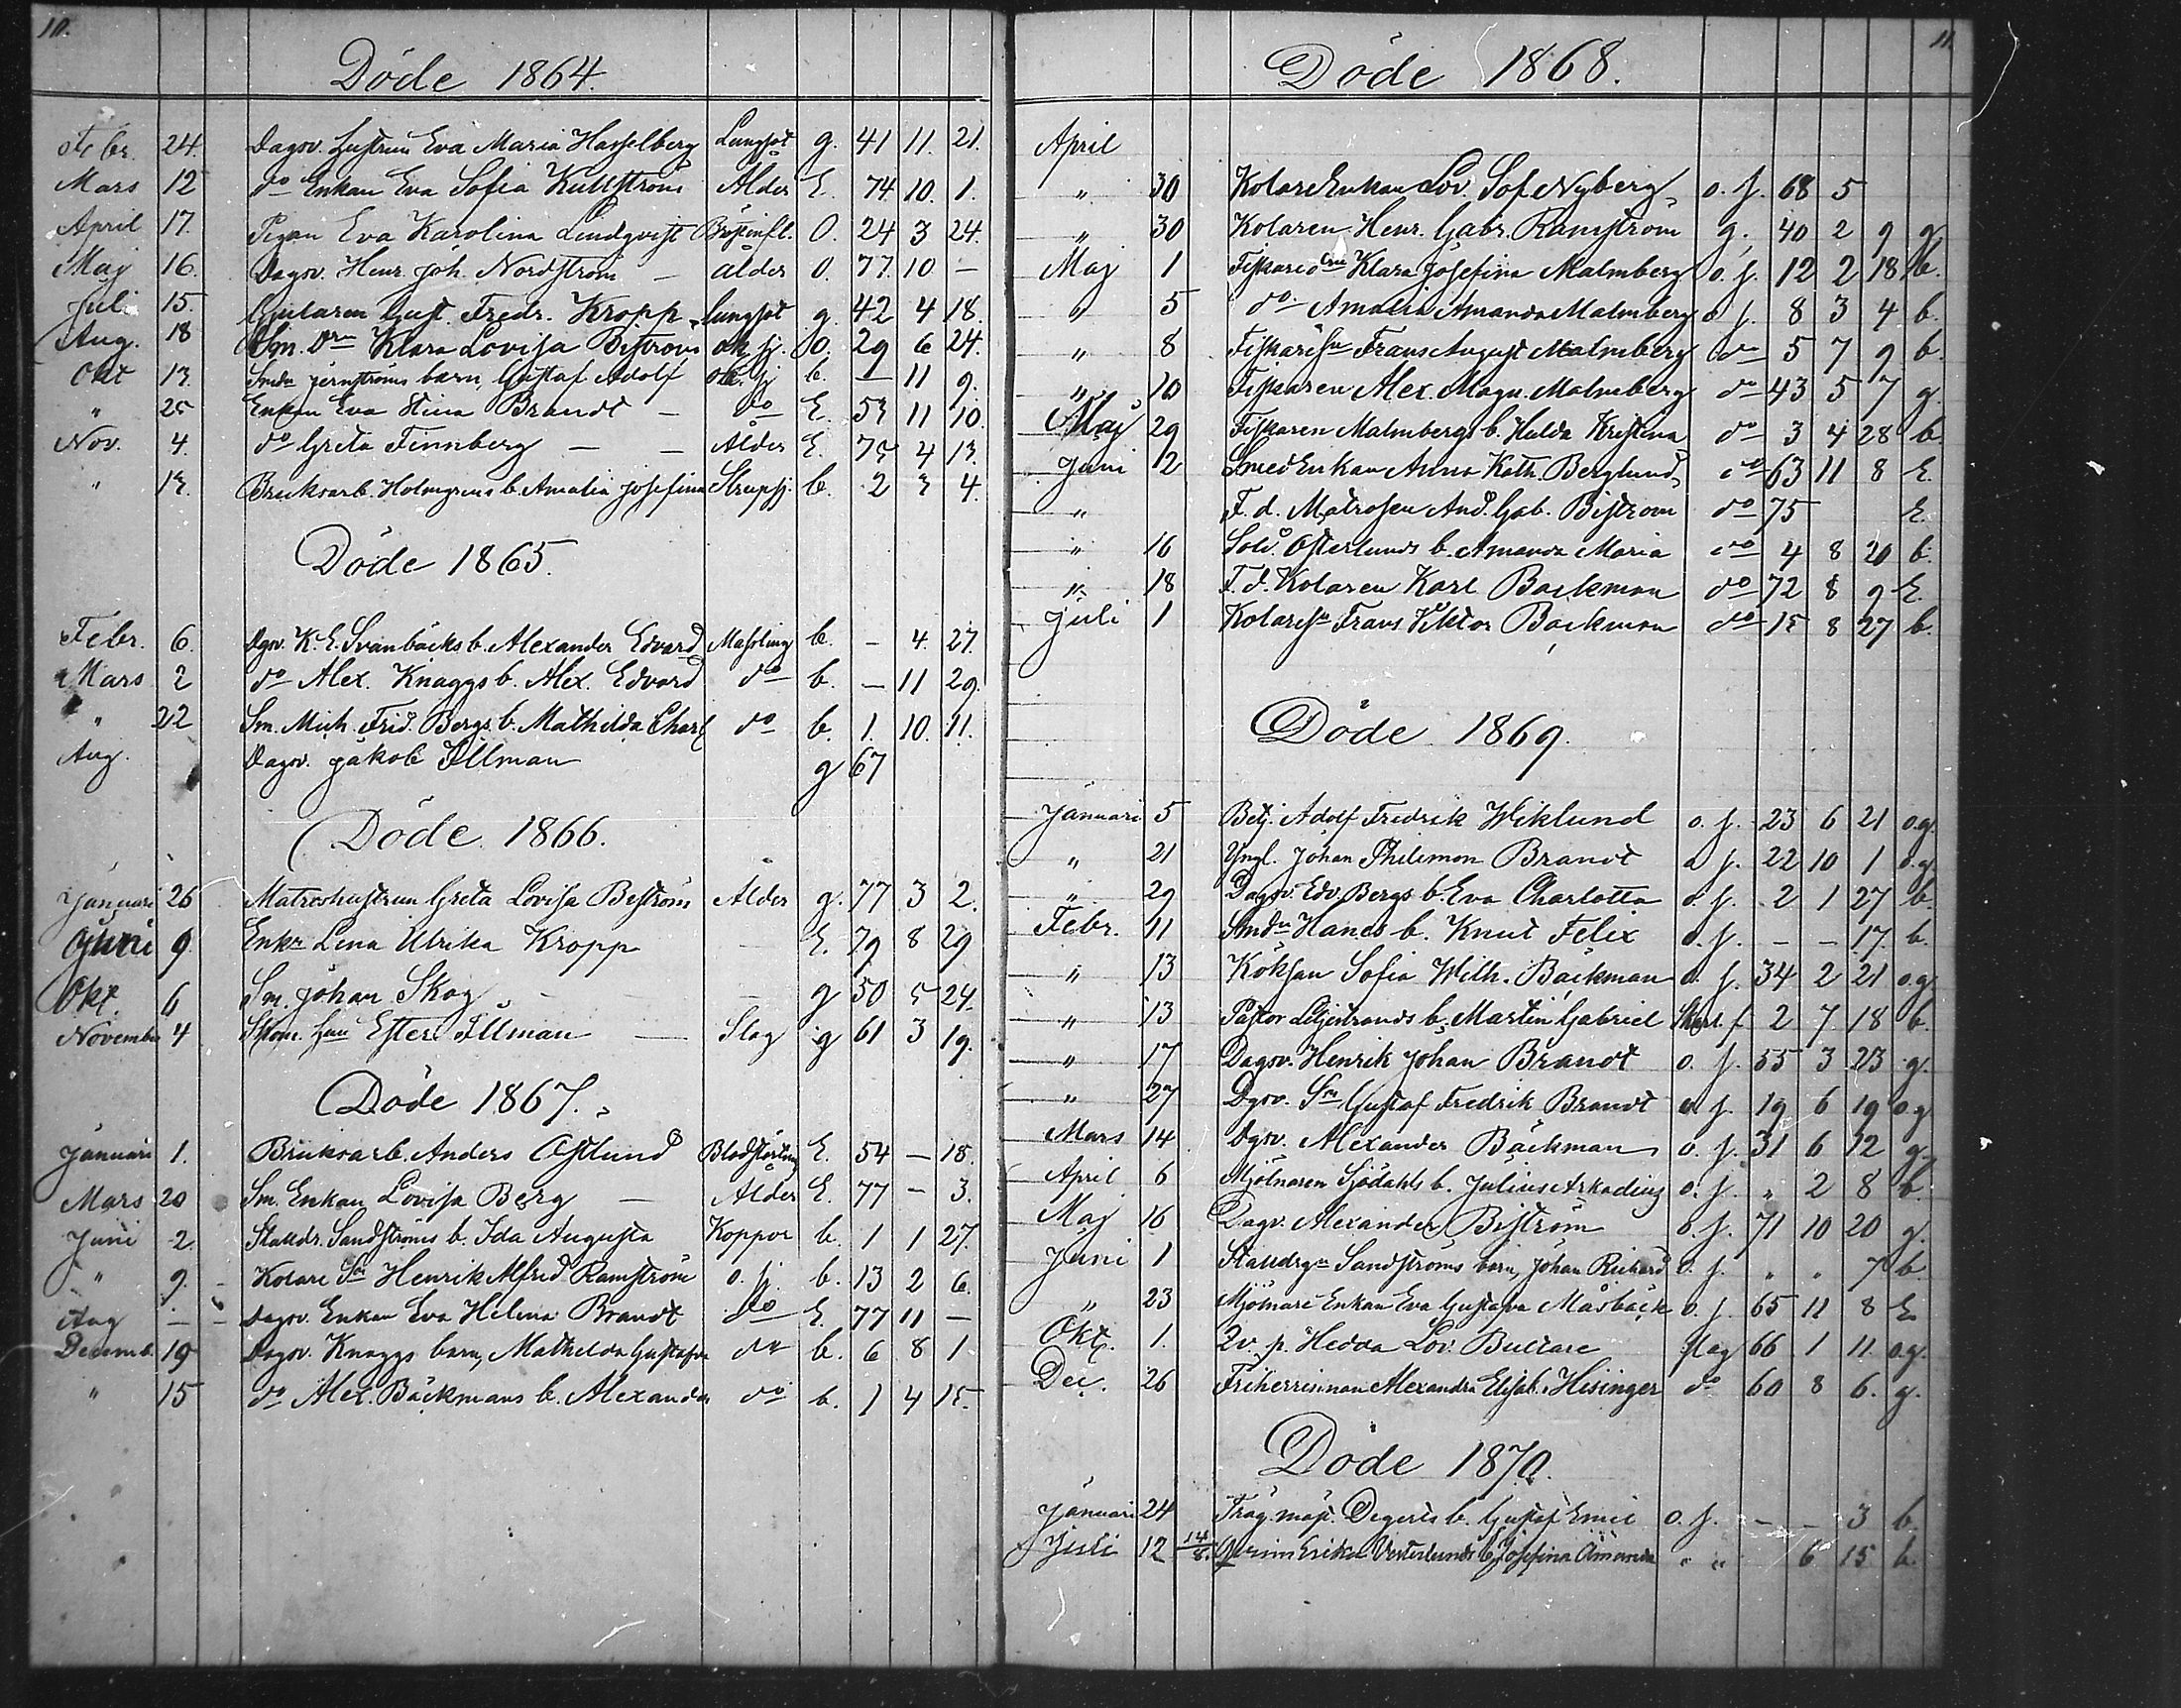 10.
Döde 1864.
Febr. 24. Dagsv. hustrun Eva Maria Hasselberg Lungsot g. 41 11. 21.
Mars 12 do Enkan Eva Sofia Kullström Ålder E. 74. 10. 1.
April 17. Pigan Eva Karolina Lindqvist Bröstinfl. O. 24 3 24.
Maj 16. Dagsv. Henr. Joh. Nordström — ålder O. 77. 10 —
Juli 15. Gust. Fredr. Kropp lungsot g. 42 4 18.
Aug. 18 Sm. Drn Klara Lovisa Biström ok. sj. O. 29 6 24.
Okt 13. Smdn Jernströms barn, Gustaf Adolf ok. sj b. — 11 9.
" 25 Enkan Eva Stina Brandt — do E. 53 11 10.
Nov. 4. do Greta Finnberg — — Ålder E. 75 4 13.
" 13. Bruksarb. Holmgrens b. Amalia Josefina Strupsj. b. 2 3 4.
Döde 1865.
Febr. 6. Dgsv. K. E. Svanbäcks b. Alexander Edvard Massling b. - 4. 27.
Mars 2 do Alex. Knaggs b. Alex. Edvard do b. — 11 29.
" 22 Sm. Mich. Frid. Bergs b. Mathilda Charl do b. 1. 10. 11.
Aug. Dagsv. Jakob Illman g 67
Döde 1866.
Januari 26 Matroshustrun Greta Lovisa Biström Ålder g. 77 3 2.
Juni 9. Enkn Lena Ulrika Kropp E. 79 8 29
Okt. 6 Sm. Johan Skog — g 50 5 24.
November 4 Ester Illman — Slag g 61 3 19.
Döde 1867.
Januari 1. Bruksarb. Anders Östlund Blodstörtning E. 54 — 18.
Mars 20 Sm. Enkan Lovisa Berg — Ålder E. 77 — 3.
Juni 2. Stalldr. Sandströms b. Ida Augusta Koppor b. 1 1 27.
" 9. Kolare Sn Henrik Alfred Ramström o. sj. b. 13 2 6.
Aug — Dagsv. Enkan Eva Helena Brandt do E. 77 11 —
Decemb. 19 Dagsv. Knaggs barn, Mathilda Gustafva do b. 6 8 1
" 15 do Alex. Bäckmans b. Alexander do b. 1 4 15.
11
Döde 1868.
April
" 30 Kolare Enkan Lov. Sof. Nyberg o. s. 68 5
" 30 Kolaren Henr. Gabr. Ramström g. 40 2 9 g
Maj 1 Fiskaredrn Klara Josefina Malmberg o. s. 12 2 18 b.
" 5 do Amalia Amanda Malmberg o s. 8 3 4 b.
" 8 Fiskaresn Frans August Malmberg do 5 7 9 b.
" 10 Fiskaren Alex. Magn. Malmberg do 43 5 7 g
Maj 29 Fiskaren Malmbergs b. Hulda Kristina do 3 4 28 b.
Juni 12 Smed Enkan Anna Kath. Berglund do 63 11 8 E.
" F. d. Matrosen And. Gab. Biström do 75 E.
" 16 Österlunds b. Amanda Maria do 4 8 20 b.
" 18 F. d. Kolaren Karl Backman do 72 8 9 E.
Juli 1 Kolaresn Frans Viktor Backman do 15 8 27 b.
Döde 1869.
Januari 5 Betj. Adolf Fredrik Wiklund o. s. 23 6 21 o.g.
" 21 Yngl. Johan Philemon Brandt o s. 22 10 1 o.g
" 29 Dagsv. Edv. Bergs b. Eva Charlotta o. s. 2 1 27 b.
Febr. 11 Smdn Hanes b. Knut Felix o. s. - - 17 b.
" 13 Köksan Sofia Wilh. Bäckman o. s. 34 2 21 o.g
" 13 Pastor Liljestrands b. Martin Gabriel Skarl. f 2 7 18 b.
" 17 Dagsv. Henrik Johan Brandt o. s. 55 3 23 g.
" 27 Dgsv. Sn Gustaf Fredrik Brandt o. s. 19 6 19 o.g
Mars 14 Dgsv. Alexander Bäckman o. s. 31 6 12 g.
April 6 Mjölnaren Sjödahls b. Julius Arkadius o. s. " 2 8 b.
Maj 16 Dagsv. Alexander Biström o. s. 71 10 20 g.
Juni 1 Stalldrgn Sandströms barn, Johan Richard o. s. " " 7 b.
" 23 Mjölnare Enkan Eva Gustafva Måsbäck o. s. 65 11 8 E.
Okt. 1. Qv. p. Hedda Lov. Bullare slag 66 1 11. o.g.
Dec. 26 Friherrinnan Alexandra Elisab. Hisinger do 60 8 6. g.
Döde 1870.
Januari 24 Träg. mäst. Degerts b. Gustaf Emil o. s. - - 3 b.
Juli 12 14/8. Erika Vesterlunds b. Josefina Amanda " " 6 15 b.